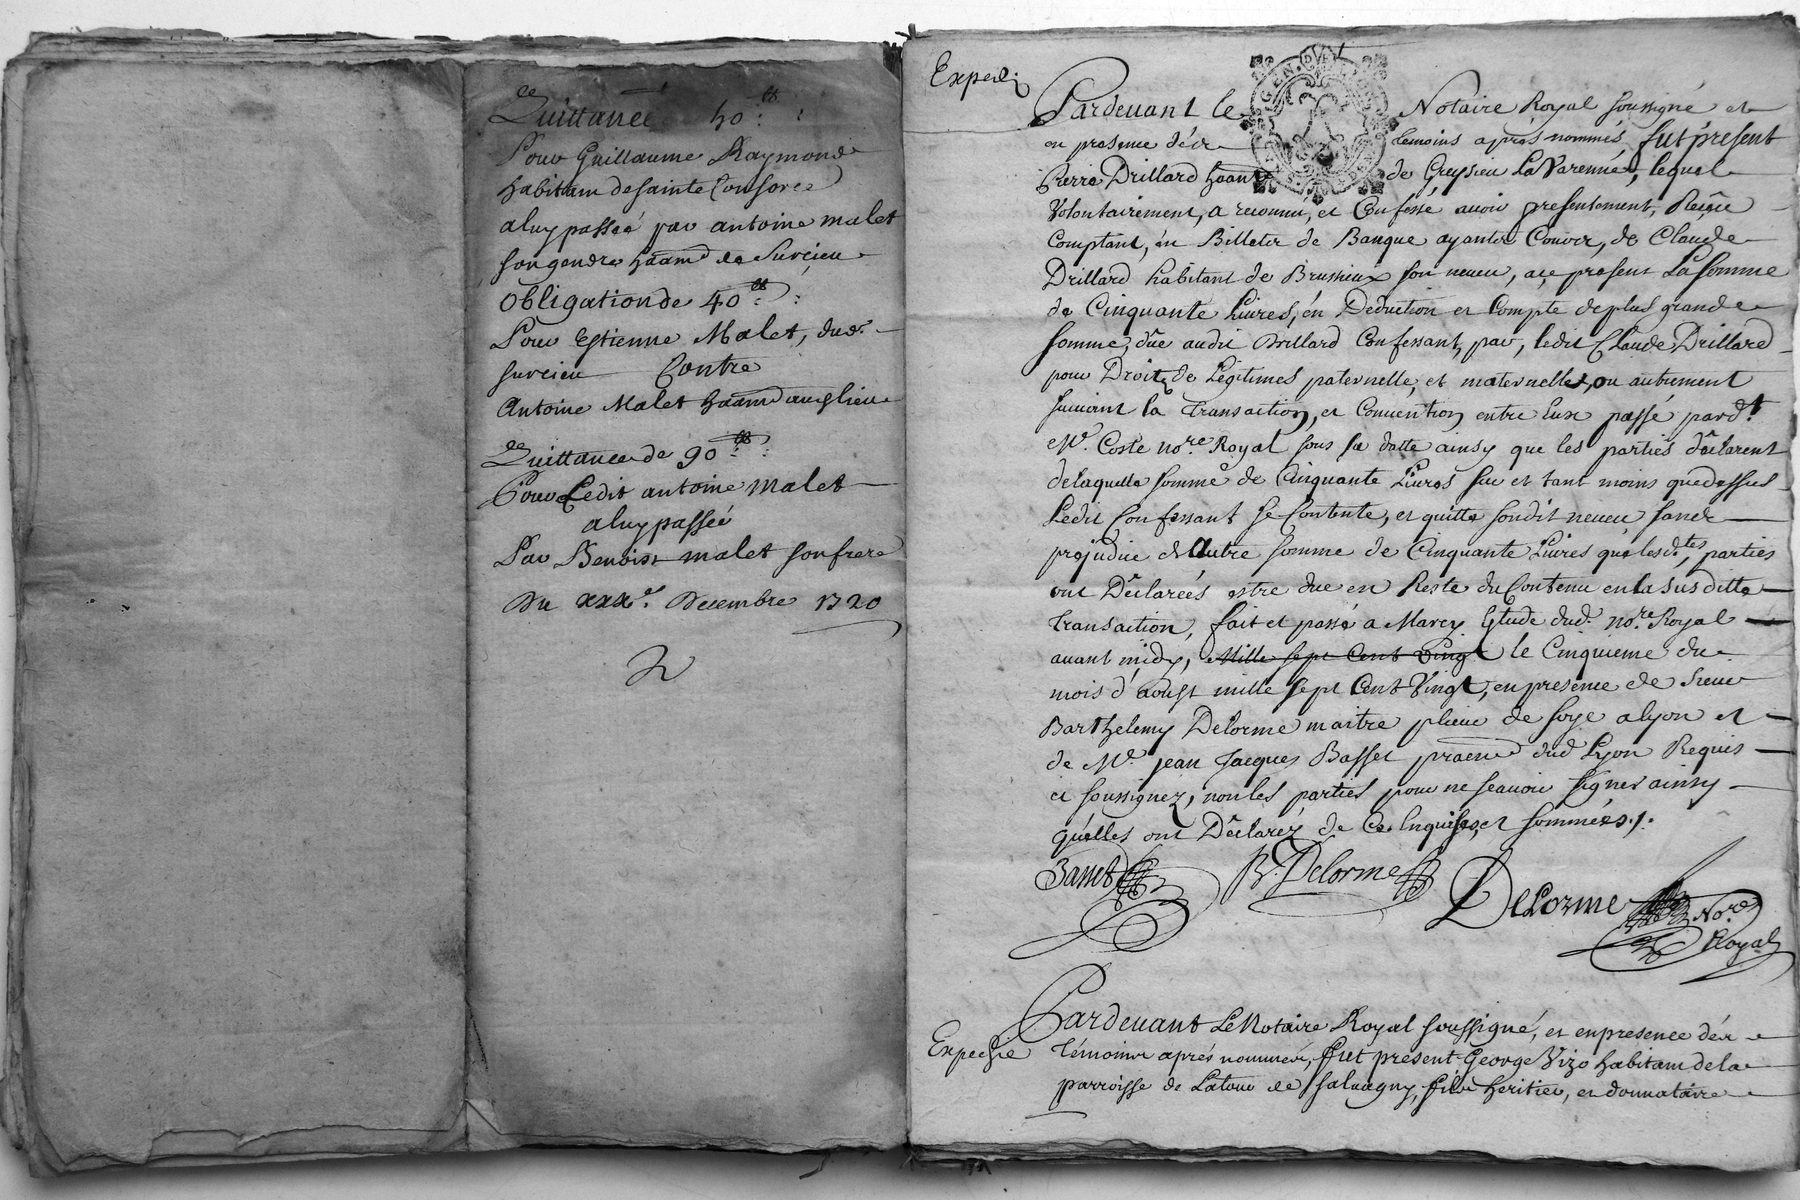 Quittance 50tt
Pour Guillaume Raymond
habitant de sainte Consorce
a luy passée par antoine malet
son gendre de Surcieu
Obligation de 40tt
Pour Estienne Malet, dud.
surcieu Contre
Antoine Malet
Quittance de 90tt
Pour Ledit antoine malet
a luy passée
Par Benoist malet son frere
Du xxxe. Decembre 1720
Exped.
Pardevant le Notaire Royal soussigné et
en presence des temoins aprés nommés, fut présent
Pierre Drillard de Greysieu La Varenne, lequel
Volontairement, a reconnu, et Confessé avoir presentement, Reçu
Comptant, en Billets de Banque ayants Cours, de Claude
Drillard habitant de Brussieux son neveu, a ce present La somme
de Cinquante Livres, en Deduction et Compte de plus grande
somme, dûe audit Drillard Confessant, par, ledit Claude Drillard
pour Droits de Légitimes paternelle, et maternelle, ou autrement
suivant la Transaction, et Convention entre Eux passé pardt.
Me. Coste nore. Royal sous sa datte ainsy que les parties déclarent
de laquelle somme de Cinquante Livres sur et tant moins que dessus
Ledit Confessant se Contente, et quitte sondit neveu sans
prejudice d'autre somme de Cinquante Livres que lesdtes. parties
ont Déclarées estre due en Reste du Contenu en la susditte
Transaction, fait et passé a Marcy Etude dud. nore. Royal
avant midy, Mille sept Cent Vingt le Cinquieme du
mois d'aoust mille sept Cent Vingt, en presence de Sieur
Barthelemy Delorme maitre plieur de soye a lyon et
de Me. jean Jacques Basset dud Lyon Requis
et soussignez, non les parties pour ne scavoir signer ainsy
qu'elles ont Déclarez de Ce Enquises, et sommées ./.
Basset B. Delorme
DeLorme Nore.
Royal
Pardevant Le Notaire Royal soussigné, et en presence des
Expedié témoins aprés nommés, fut present George Vizo habitant de la
parroisse de Latour de salvagny, fils heritier, et donnataire